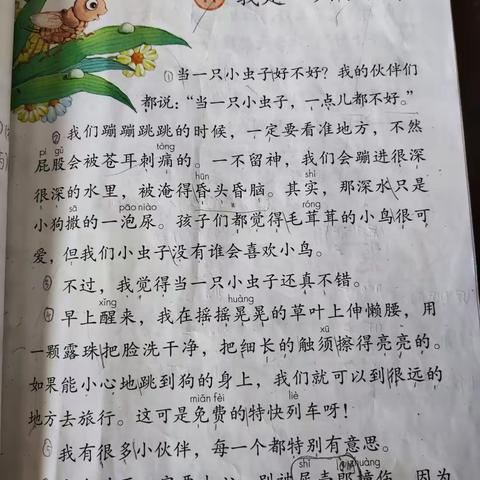 ①当一只小虫子好不好？我的伙伴们
都说：“当一只小虫子，一点儿都不好。”
②我们蹦蹦跳跳的时候，一定要看准地方，不然
pì gu tòng
屁股会被苍耳刺痛的。一不留神，我们会蹦进很深
hūn shí
很深的水里，被淹得昏头昏脑。其实，那深水只是
sā pāo niào róng
小狗撒的一泡尿。孩子们都觉得毛茸茸的小鸟很可
爱，但我们小虫子没有谁会喜欢小鸟。
③不过，我觉得当一只小虫子还真不错。
xǐng huàng
④早上醒来，我在摇摇晃晃的草叶上伸懒腰，用
xū
一颗露珠把脸洗干净，把细长的触须擦得亮亮的。
如果能小心地跳到狗的身上，我们就可以到很远的
miǎn fèi liè
地方去旅行。这可是免费的特快列车呀！
⑤我有很多小伙伴，每一个都特别有意思。
shǐ zhuàng
别被屎壳郎撞伤，因为